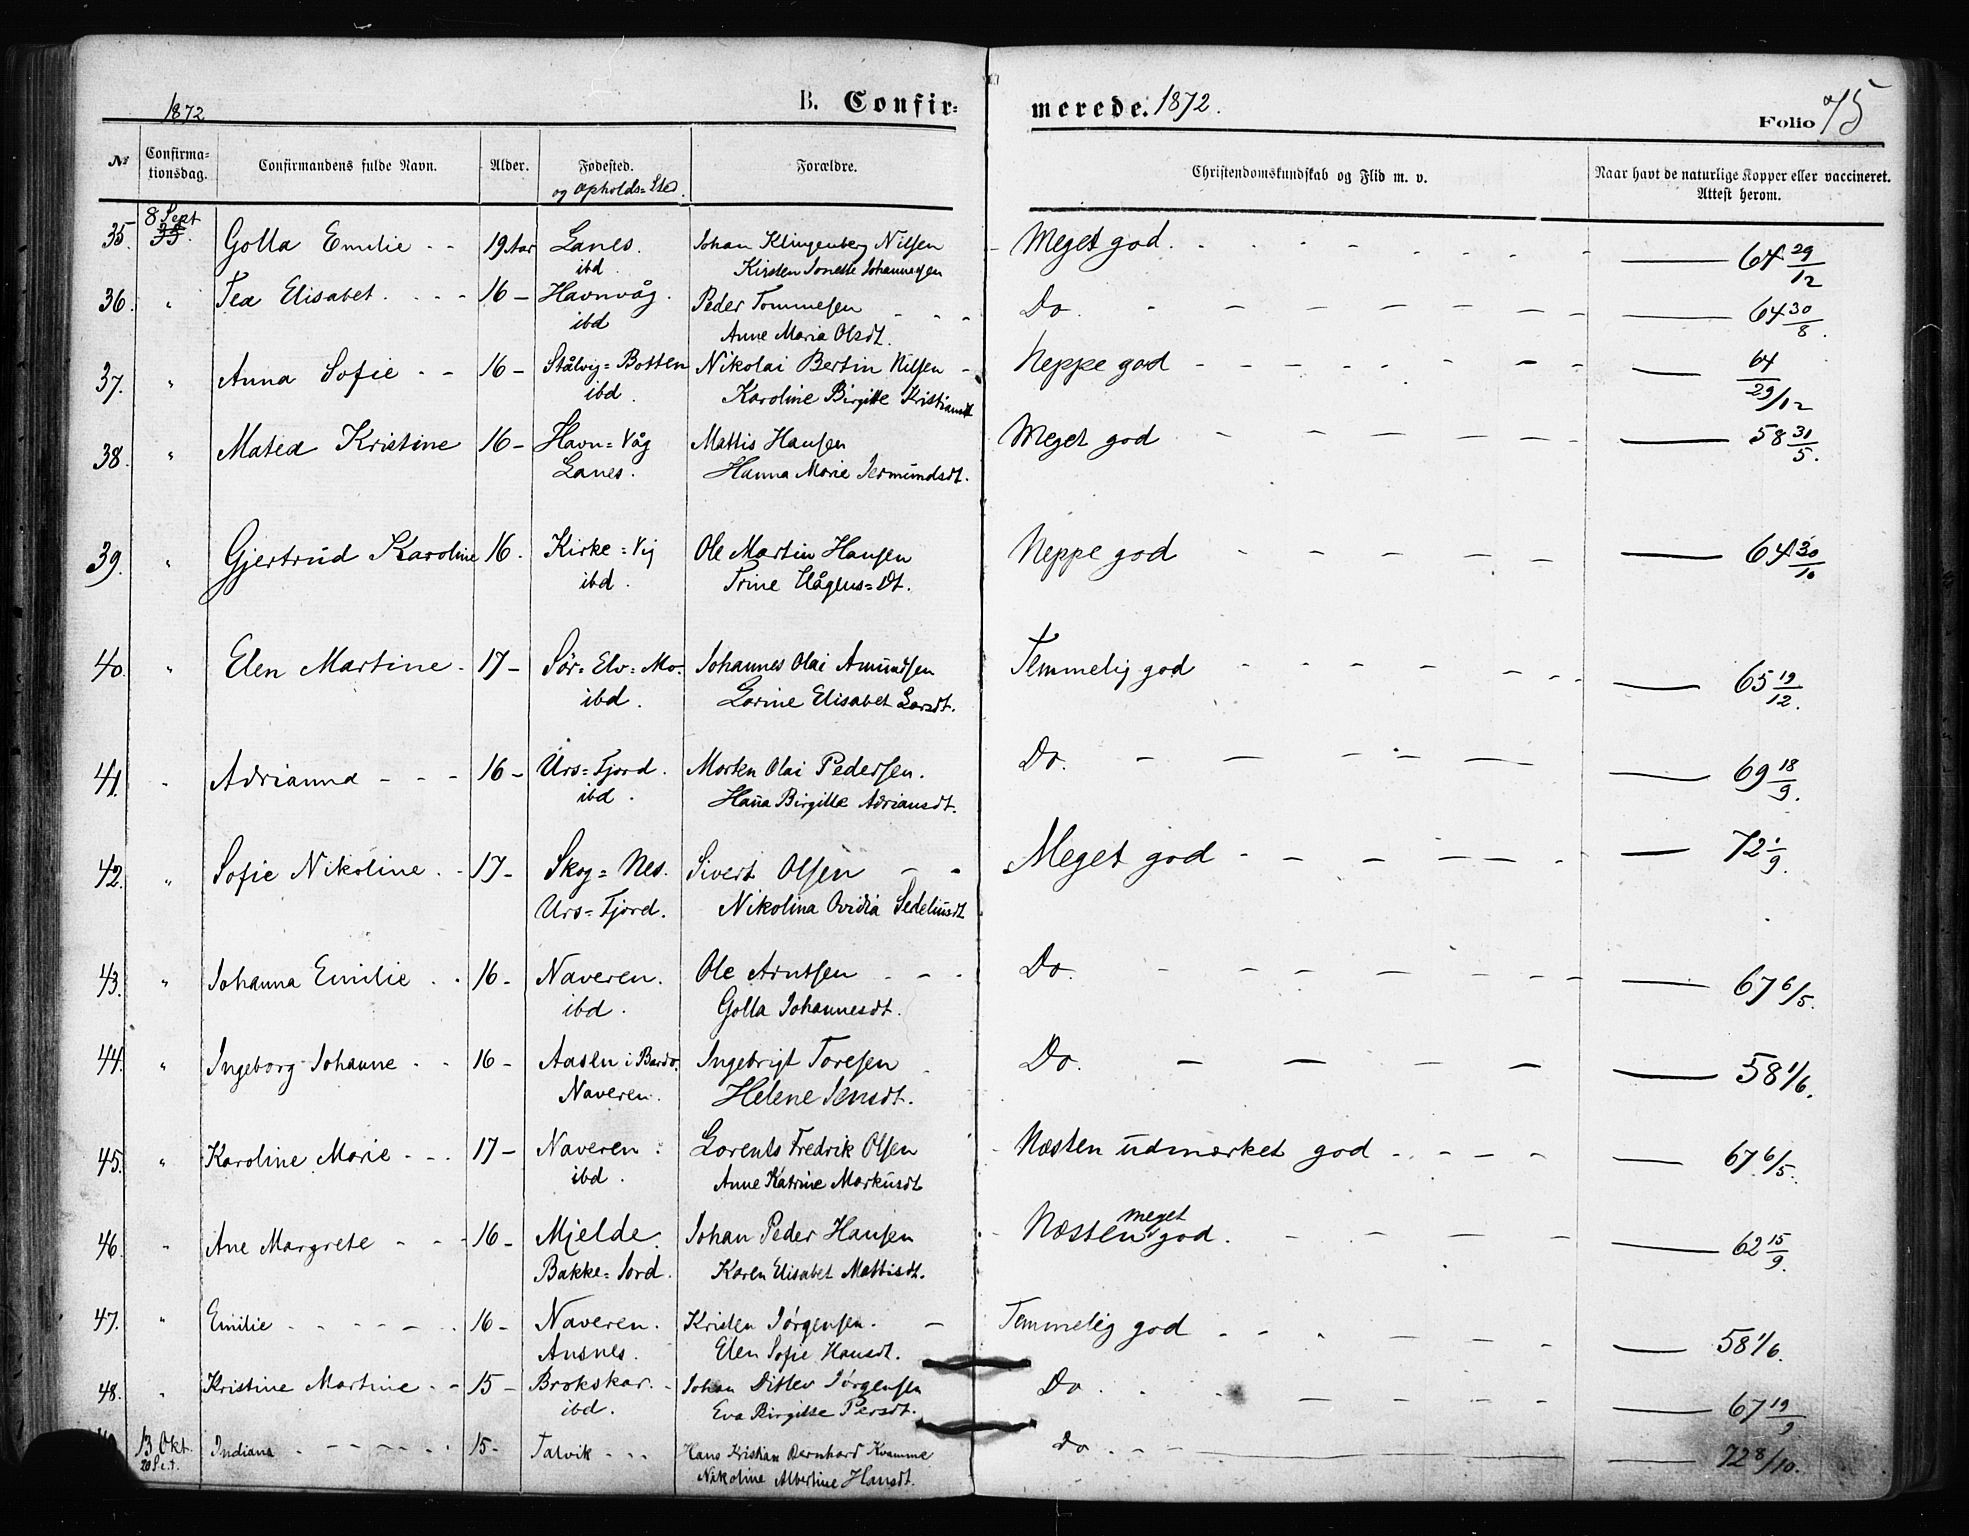 1872
B. Confir=
merede. 1872.
Folio 75
No Confirma-tionsdag. Confirmandens fulde Navn. Alder. Fødested. og Opholds=Sted. Forældre. Christendomskundskab og Flid m. v. Naar havt de naturlige Kopper eller vaccineret. Attest herom.
35. 8 Sept Golla Emilie - - 19 Aar Lanes. Johan Klingenberg Nilsen Meget god. 64 29/12
ibd. Kirsten Jonette Johannesen
36. " Tea Elisabet. 16 - Havnvåg. Peder Tommesen Do. 64 30/8.
ibd Anne Maria Olsdt.
37. " Anna Sofie - - 16 - Stålvig=Botten Nikolai Bertin Nilsen - Neppe god 64 29/12
ibd. Karoline Birgitte Kristiansdt
38. " Matea Kristine 16 - Havn=Våg Mattis Hansen Meget god 58 31/5.
Lanes. Hanna Marie Jermundsdt.
39. " Gjertrud Karoline 16. Kirke=Vig Ole Martin Hansen Neppe god 64 30/10
ibd. Trine Hågens=Dt.
40. " Elen Martine - 17 - Sør=Elv=Mo. Johannes Olai Amundsen Temmelig god 65 19/12.
ibd. Lorine Elisabet Larsdt.
41. " Adrianna - - - 16 - Urs=Fjord. Morten Olai Pedersen. Do. 69 18/9.
ibd. Hanna Birgitte Adriansdt.
42. " Sofie Nikoline. - 17 - Skog=Nes. Sivert Olsen - - Meget god 72 1/9.
Urs=Fjord. Nikolina Ovidia Sedeliusdt
43. " Johanna Emilie . . 16 - Naveren. Ole Arntsen - - - Do. 67 6/5.
ibd. Golla Johannesdt.
44. " Ingeborg Johanne . - 16 - Aasen i Bardo. Ingebrigt Toresen Do. 58 1/6.
Naveren. Helene Jensdt.
45. " Karoline Marie - - - 17 - Naveren. Lorents Fredrik Olsen Næsten udmærket god 67. 6/5.
ibd. Anne Katrine Markusdt
46. " Ane Margrete - - - 16 - Mjelde. Johan Peder Hansen Næsten meget god. 62 15/9.
Bakke=Jord. Karen Elisabet Mattisdt.
47. " Emilie - - - - - 16 - Naveren. Kristen Jørgensen. - Temmelig god 58 1/6.
Ansnes. Elen Sofie Hansdt.
48. " Kristine Martine - - 15 - Brokskar. - Johan Ditlev Jørgensen Do. 67 19/9
ibd. Eva Birgitte Persdt.
13 Okt. Indiana - - - - - 15 - Talvik - - - Hans Kristian Bernhard Kvamme Do 72 8/10.
Nikoline Albertine Hansdt.